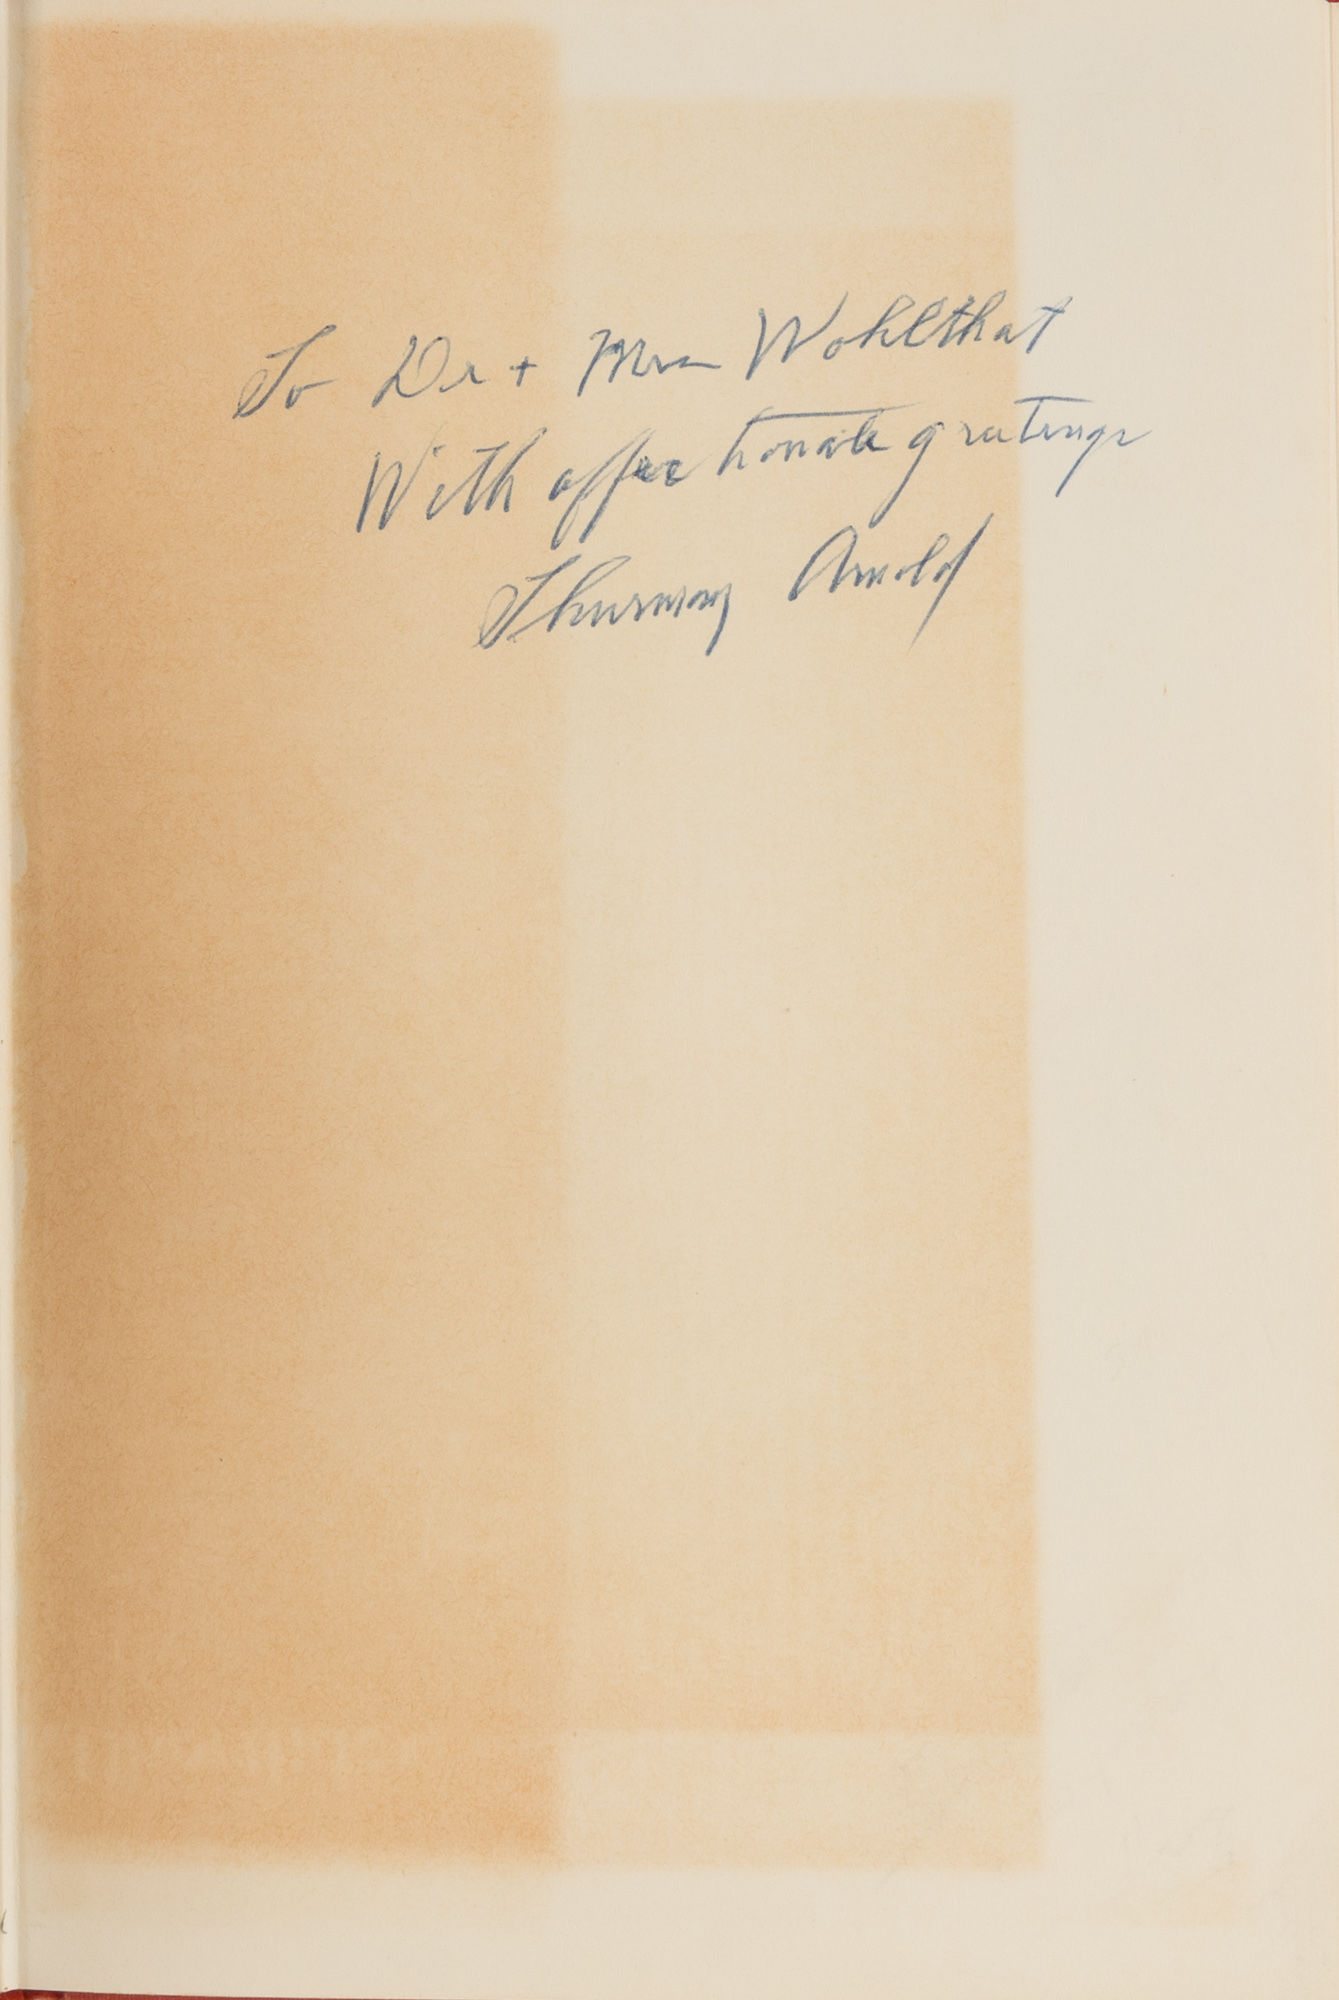 To Dr + Mrs Wohlthat
With affectionate greetings
Thurman Arnold